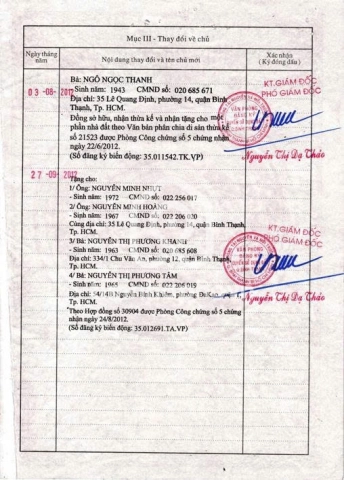 Mục III - Thay đổi về chủ
Ngày tháng năm
Nội dung thay đổi và tên chủ mới
Xác nhận
(Ký đóng dấu)
03-08-2012
Bà: NGÔ NGỌC THANH
- Sinh năm: 1943 CMND số: 020 685 671
Địa chỉ: 35 Lê Quang Định, phường 14, quận Bình
Thạnh, Tp. HCM.
Đồng sở hữu, nhận thừa kế và nhận tặng cho một
phần nhà đất theo Văn bản phân chia di sản thừa kế
số 21523 được Phòng Công chứng số 5 chứng nhận
ngày 22/6/2012.
(Số đăng ký biến động: 35.011542.TK.VP)
KT.GIÁM ĐỐC
PHÓ GIÁM ĐỐC
Nguyễn Thị Dạ Thảo
27-09-2012
Tặng cho:
1/ Ông: NGUYỄN MINH NHỰT
- Sinh năm: 1972 CMND số: 022 256 017
2/ Ông: NGUYỄN MINH HOÀNG
- Sinh năm: 1967 CMND số: 022 206 020
Cùng địa chỉ: 35 Lê Quang Định, phường 14, quận Bình Thạnh,
Tp. HCM.
3/ Bà: NGUYỄN THỊ PHƯƠNG KHANH
- Sinh năm: 1963 CMND số: 020 685 608
Địa chỉ: 334/1 Chu Văn An, phường 12, quận Bình Thạnh,
Tp. HCM.
4/ Bà: NGUYỄN THỊ PHƯƠNG TÂM
- Sinh năm: 1965 CMND số: 022 206 019
Địa chỉ: 54/14B Nguyễn Bỉnh Khiêm, phường ĐaKao, quận 1,
Tp. HCM.
Theo Hợp đồng số 30904 được Phòng Công chứng số 5 chứng
nhận ngày 24/8/2012.
(Số đăng ký biến động: 35.012691.TA.VP)
KT.GIÁM ĐỐC
PHÓ GIÁM ĐỐC
Nguyễn Thị Dạ Thảo